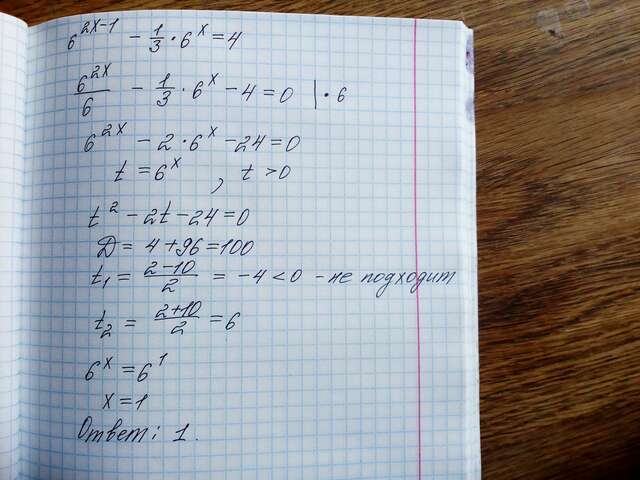 6^{2x-1} - \frac{1}{3} \cdot 6^x = 4
\frac{6^{2x}}{6} - \frac{1}{3} \cdot 6^x - 4 = 0 | \cdot 6
6^{2x} - 2 \cdot 6^x - 24 = 0
t = 6^x , t > 0
t^2 - 2t - 24 = 0
D = 4 + 96 = 100
t_1 = \frac{2-10}{2} = -4 < 0 - не подходит
t_2 = \frac{2+10}{2} = 6
6^x = 6^1
x = 1
Ответ: 1.